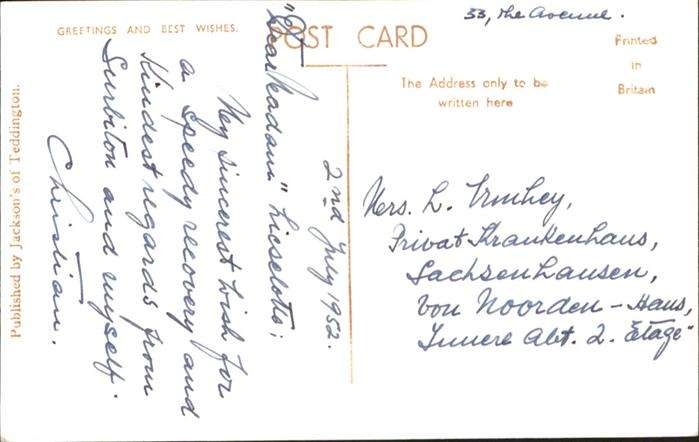 33, The Avenue.
GREETINGS AND BEST WISHES.
POST CARD
Printed
in
Britain
The Address only to be
written here
2nd July 1952.
Dear Madam" Lieselotte:
My sincerest wish for
a speedy recovery and
kindest regards from
Surbiton and myself.
Christian.
Mrs. L.
Privat Krankenhaus,
Sachsenhausen,
von Noorden-Haus,
Innere Abt. 2. Etage"
Published by Jackson's of Teddington.